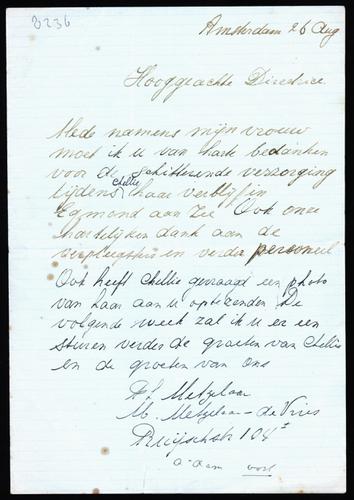 3236
Amsterdam 26 Aug
Hooggeachte Directrice
Mede namens mijn vrouw
moet ik u van harte bedanken
voor de schitterende verzorging
tijdens Chellie haar verblijf in
Egmond aan Zee Ook onze
hartelijken dank aan de
verpleegsters en verder personeel
Ook heeft Chellie gevraagd een photo
van haar aan u optezenden De
volgende week zal ik u er een
sturen verder de groeten van Chellie
en de groeten van ons
Metzelaar
M. Metzelaar-de Vries
Ruijschstr 104 I
A-dam oost